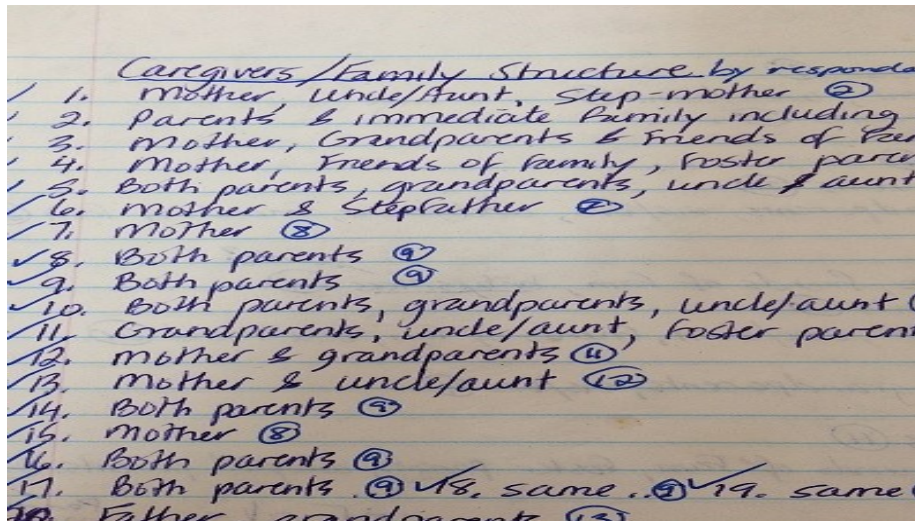 Caregivers/Family Structure by responde
✓ 1. Mother, Uncle/Aunt, Step-mother ②
✓ 2. Parents & immediate family including
✓ 3. Mother, Grandparents & Friends of
✓ 4. Mother, Friends of family, Foster paren
✓ 5. Both parents, grandparents, uncle & aunt
✓ 6. Mother & Stepfather
✓ 7. Mother ⑧
✓ 8. Both parents ⑨
✓ 9. Both parents ⑨
✓ 10. Both parents, grandparents, uncle/aunt
✓ 11. Grandparents, uncle/aunt, Foster paren
✓ 12. Mother & grandparents ⑪
✓ 13. Mother & uncle/aunt ⑫
✓ 14. Both parents ⑨
✓ 15. Mother ⑧
✓ 16. Both parents ⑨
✓ 17. Both parents. ⑨ ✓ 18. same.. ⑨ ✓ 19. same
Father grandparents ⑬